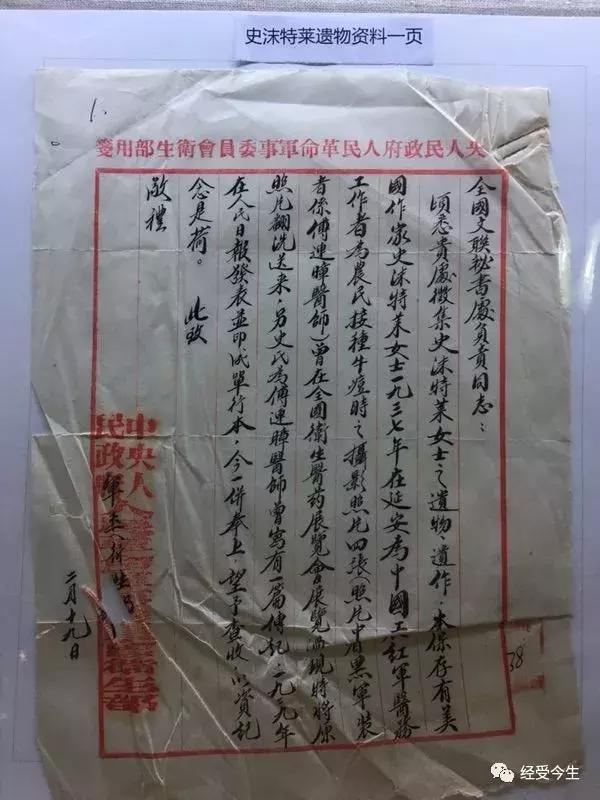 史沫特莱遗物资料一页
1.
央人民政府人民革命軍事委員會衛生部用箋
全國文联秘書處負責同志：
頃悉貴處徵集史沫特莱女士之遺物、遺作，本保存有美
國作家史沫特莱女士一九三七年在延安為中國工红軍醫務
工作者為農民接種牛痘時之攝影照片四張（照片中着黑軍裝
者係傅連暲醫師）曾在全國衛生醫药展覽會展覽過現特將原
照片翻洗送来，另史氏為傅連暲醫師曾寫有一篇傳記，一九三九年
在人民日報發表並印成單行本，今一併奉上，望予查收，以資記
念是荷。 此致
敬禮
中央人
民政
軍委衛生部
二月十九日
38
经受今生